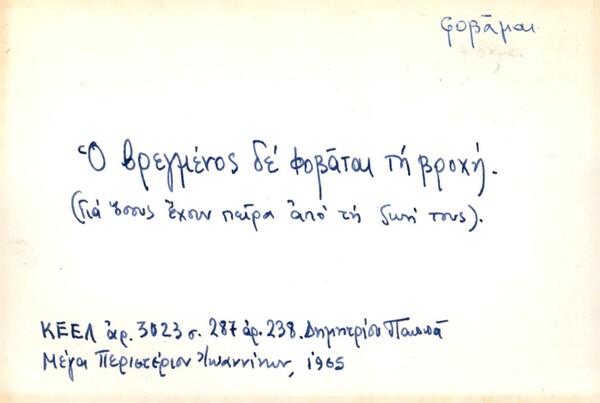 φοβᾶμαι
Ὁ βρεγμένος δέ φοβᾶται τή βροχή.
(Γιά ὅσους ἔχουν πεῖρα ἀπό τή ζωή τους).
ΚΕΕΛ ἀρ. 3023 σ. 287 ἀρ. 238. Δημητρίου Παππᾶ
Μέγα Περιστέριον Ἰωαννίνων, 1965